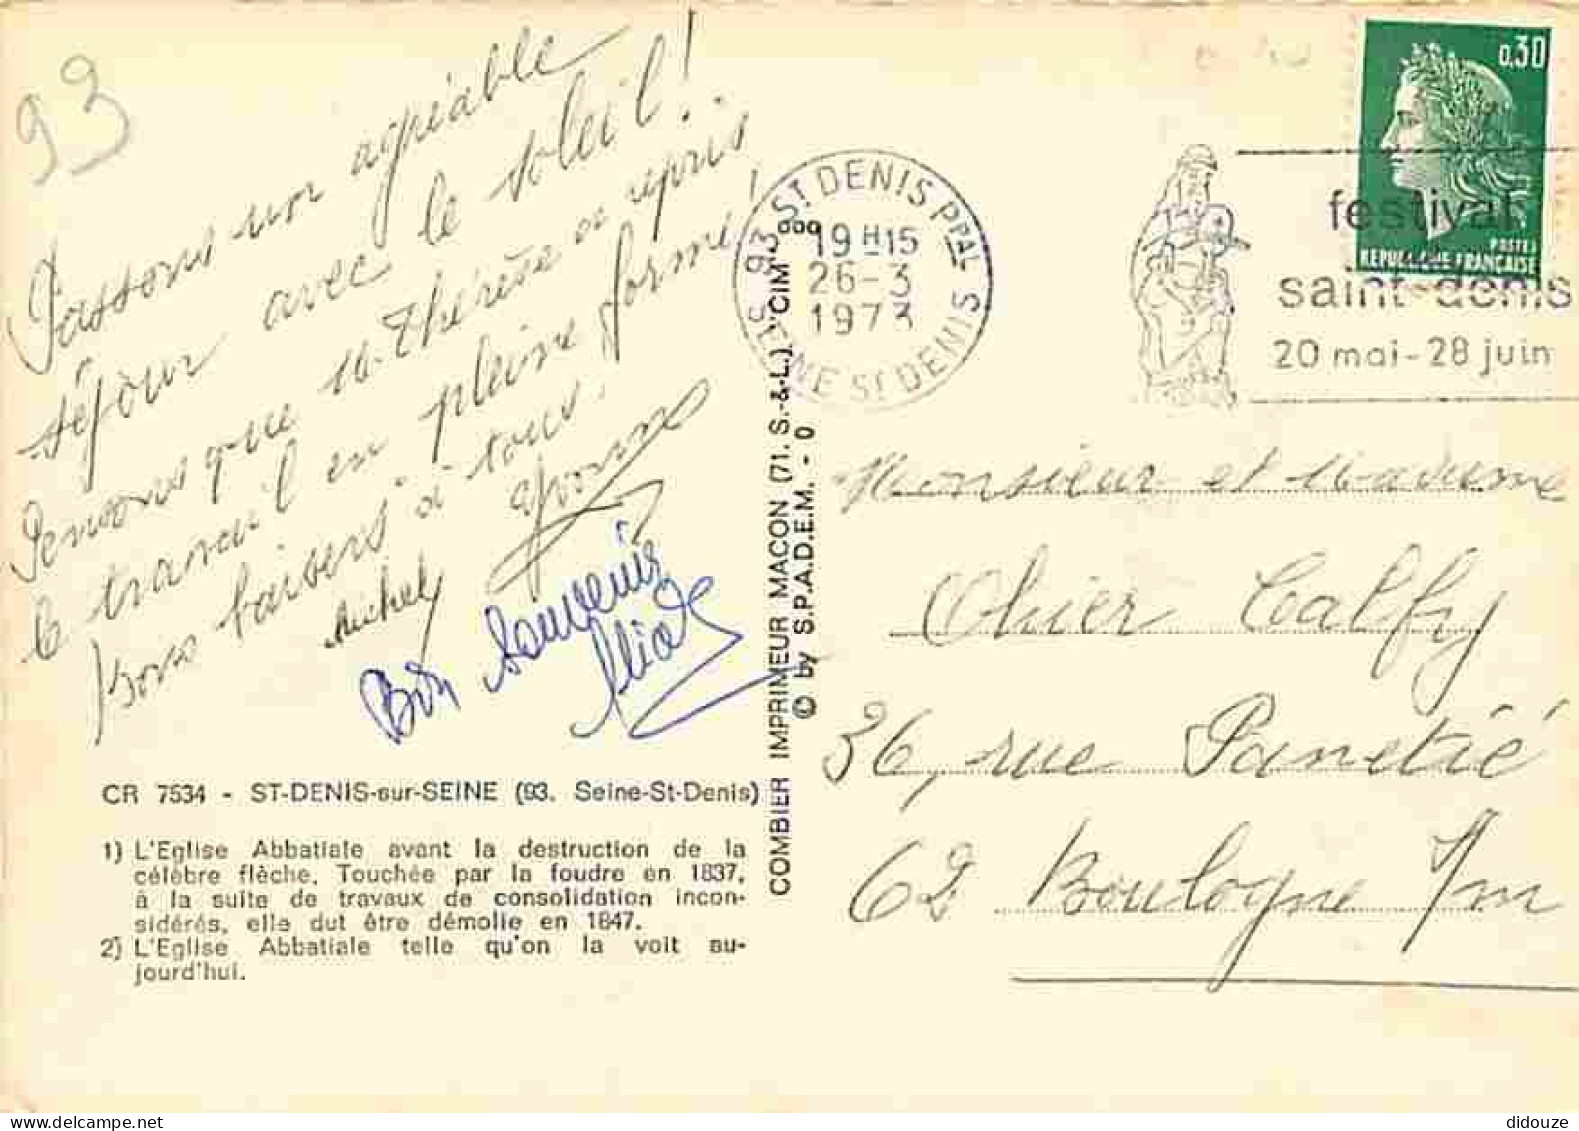 93
Passons un agréable
séjour avec le soleil !
Pensons que M-Thérèse a repris
le travail en pleine forme !
Bons baisers à tous.
Michel
Bon souvenir
CR 7534 - ST-DENIS-sur-SEINE (93. Seine-St-Denis)
1) L'Eglise Abbatiale avant la destruction de la
célèbre flèche. Touchée par la foudre en 1837,
à la suite de travaux de consolidation incon-
sidérés, elle dut être démolie en 1847.
2) L'Eglise Abbatiale telle qu'on la voit au-
jourd'hui.
COMBIER IMPRIMEUR MACON (71. S.-&-L.) "CIM"
© by S.P.A.D.E.M. - 0
93 ST DENIS PPAL
19 H 15
26-3
1973
SEINE ST DENIS
0,30
POSTES
REPUBLIQUE FRANÇAISE
festival
saint-denis
20 mai - 28 juin
Monsieur et Madame
Ohier Calfy
36, rue Panetié
62 Boulogne s/m
didouze